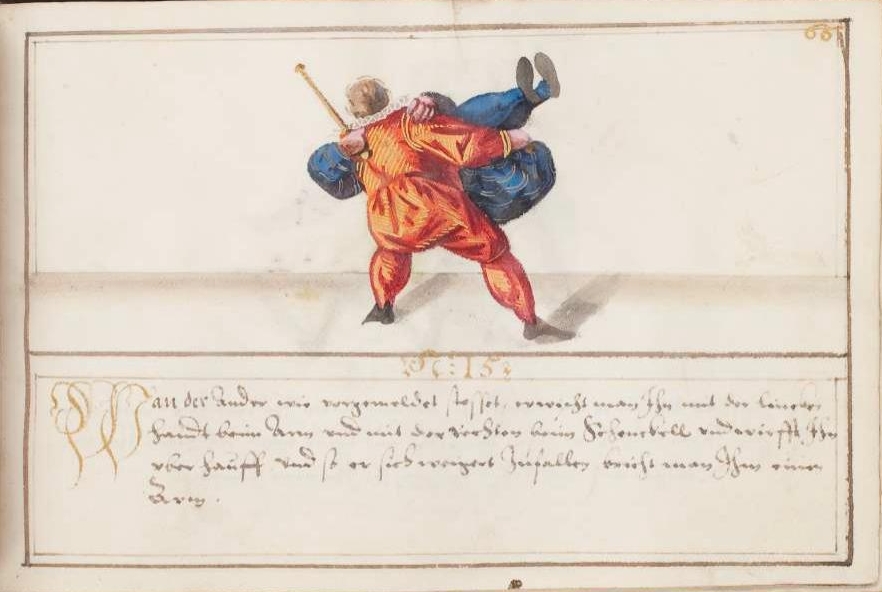 68
N: 15
Wan der Ander wie vorgemeldet stosset, erwischt man Ihn mit der lincken
handt beim Arm und mit der rechten beim Schenckell und wirfft Ihn
vber hauff vnd so er sich weigert Zufallen bricht man Ihm einen
Arm.